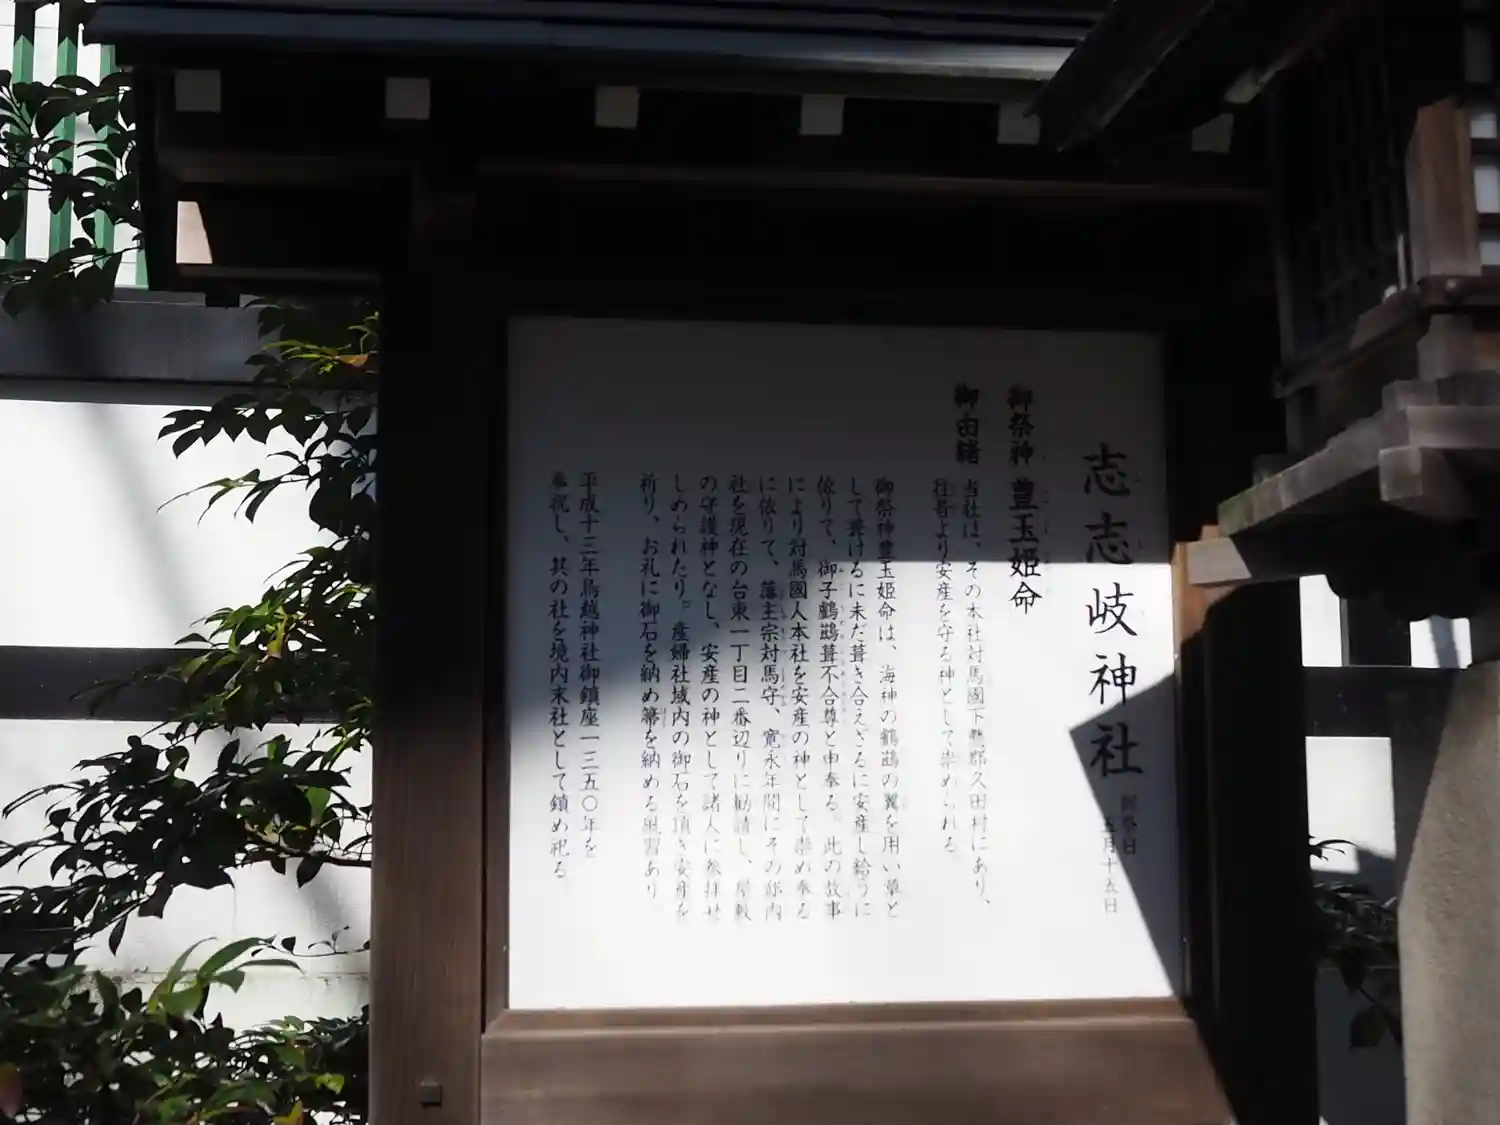 志志岐神社
例祭日
五月十五日
御祭神 豊玉姫命
御由緒
当社は、その本社対馬國下縣郡久田村にあり、
往昔より安産を守る神として崇められる。
御祭神豊玉姫命は、海神の鶴鵡の翼を用い草と
して葺けるに未だ葺き合えざるに安産し給うに
依りて、御子鶴鵡葺不合尊と申奉る。此の故事
により対馬國人本社を安産の神として崇め奉る
に依りて、藩主宗対馬守、寛永年間にその邸内
社を現在の台東一丁目二番辺りに勧請し、屋敷
の守護神となし、安産の神として諸人に参拝せ
しめられたり。産婦社域内の御石を頂き安産を
祈り、お礼に御石を納め箒を納める風習あり。
平成十三年鳥越神社御鎮座一三五〇年を
奉祝し、其の社を境内末社として鎮め祀る。